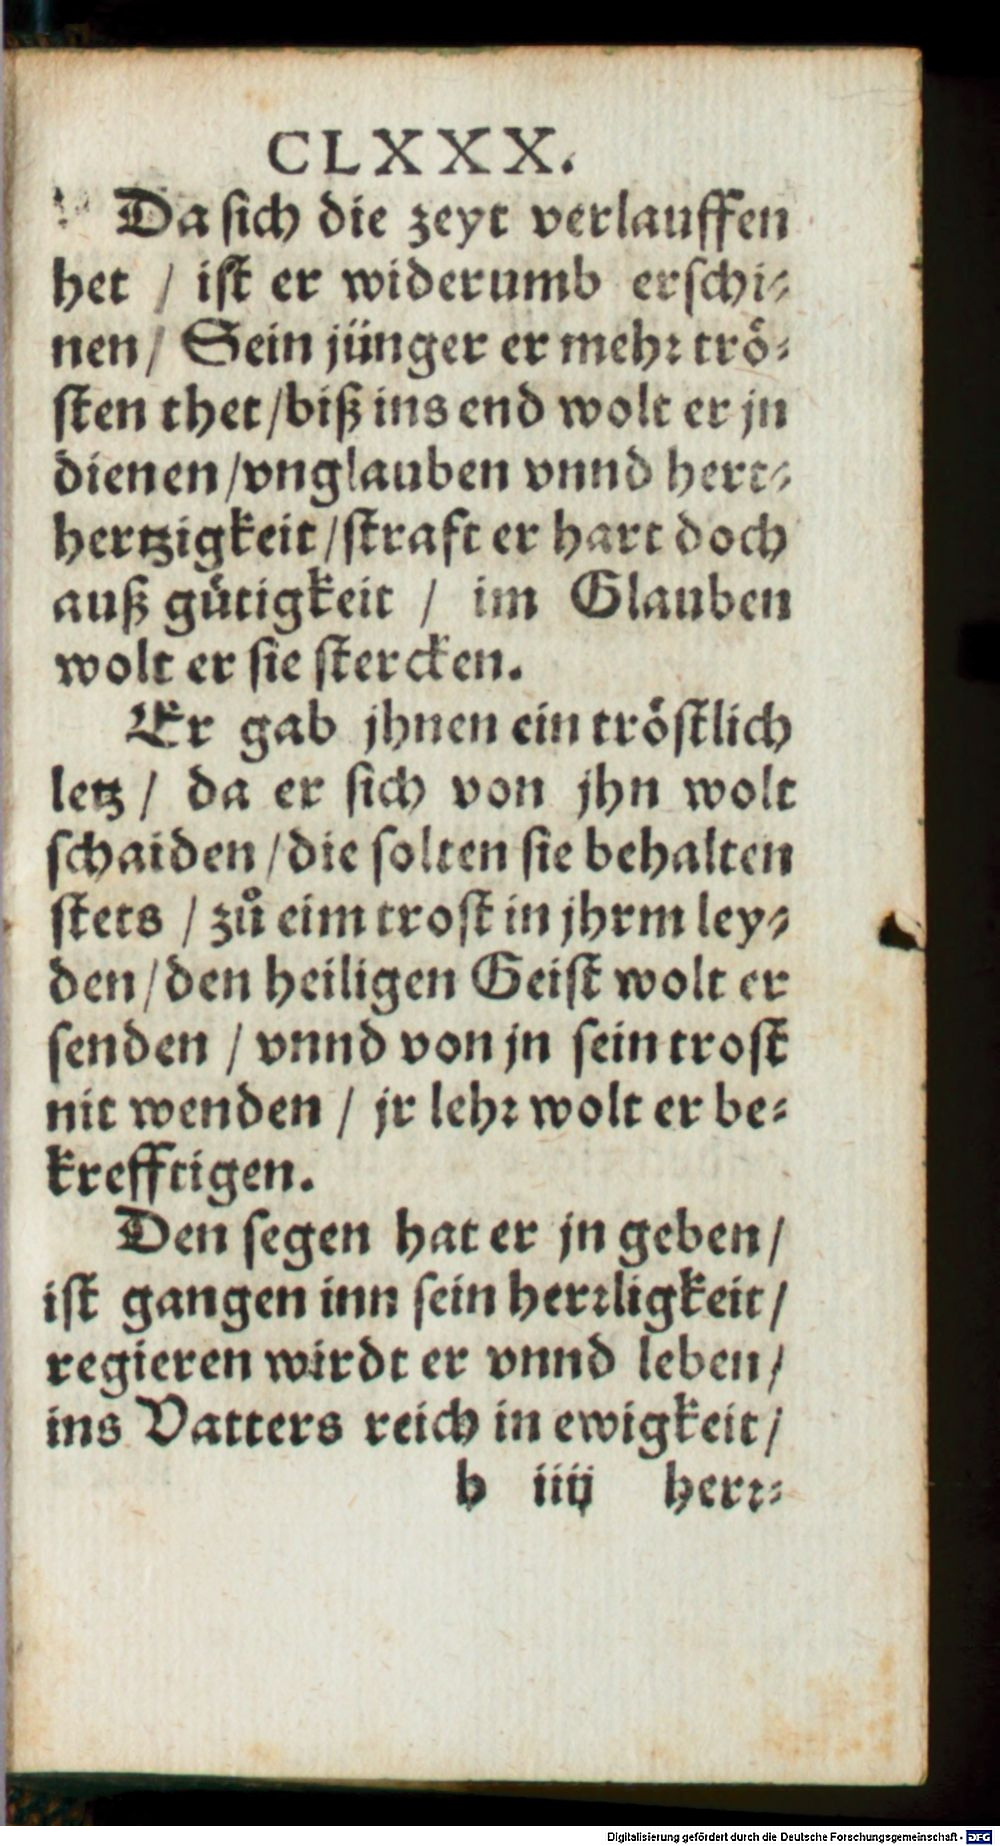 CLXXX.
Da sich die zeyt verlauffen
het / ist er widerumb erschi-
nen / Sein jünger er mehr trö-
sten thet / biß ins end wolt er jn
dienen / vnglauben vnnd hert-
hertzigkeit / straft er hart doch
auß gütigkeit / im Glauben
wolt er sie stercken.
Er gab jhnen ein tröstlich
letz / da er sich von jhn wolt
schaiden / die solten sie behalten
stets / zů eim trost in jhrm ley-
den / den heiligen Geist wolt er
senden / vnnd von jn sein trost
nit wenden / jr lehr wolt er be-
krefftigen.
Den segen hat er jn geben /
ist gangen inn sein herrligkeit /
regieren wirdt er vnnd leben /
ins Vatters reich in ewigkeit /
h iiij herr-
Digitalisierung gefördert durch die Deutsche Forschungsgemeinschaft - DFG